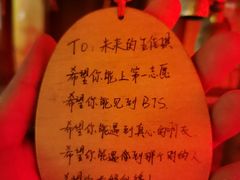 TO：未来的
希望你能上第一志愿
希望你能见到BTS
希望你能遇到真心的朋友
希望你能遇到那个对的人
希望你